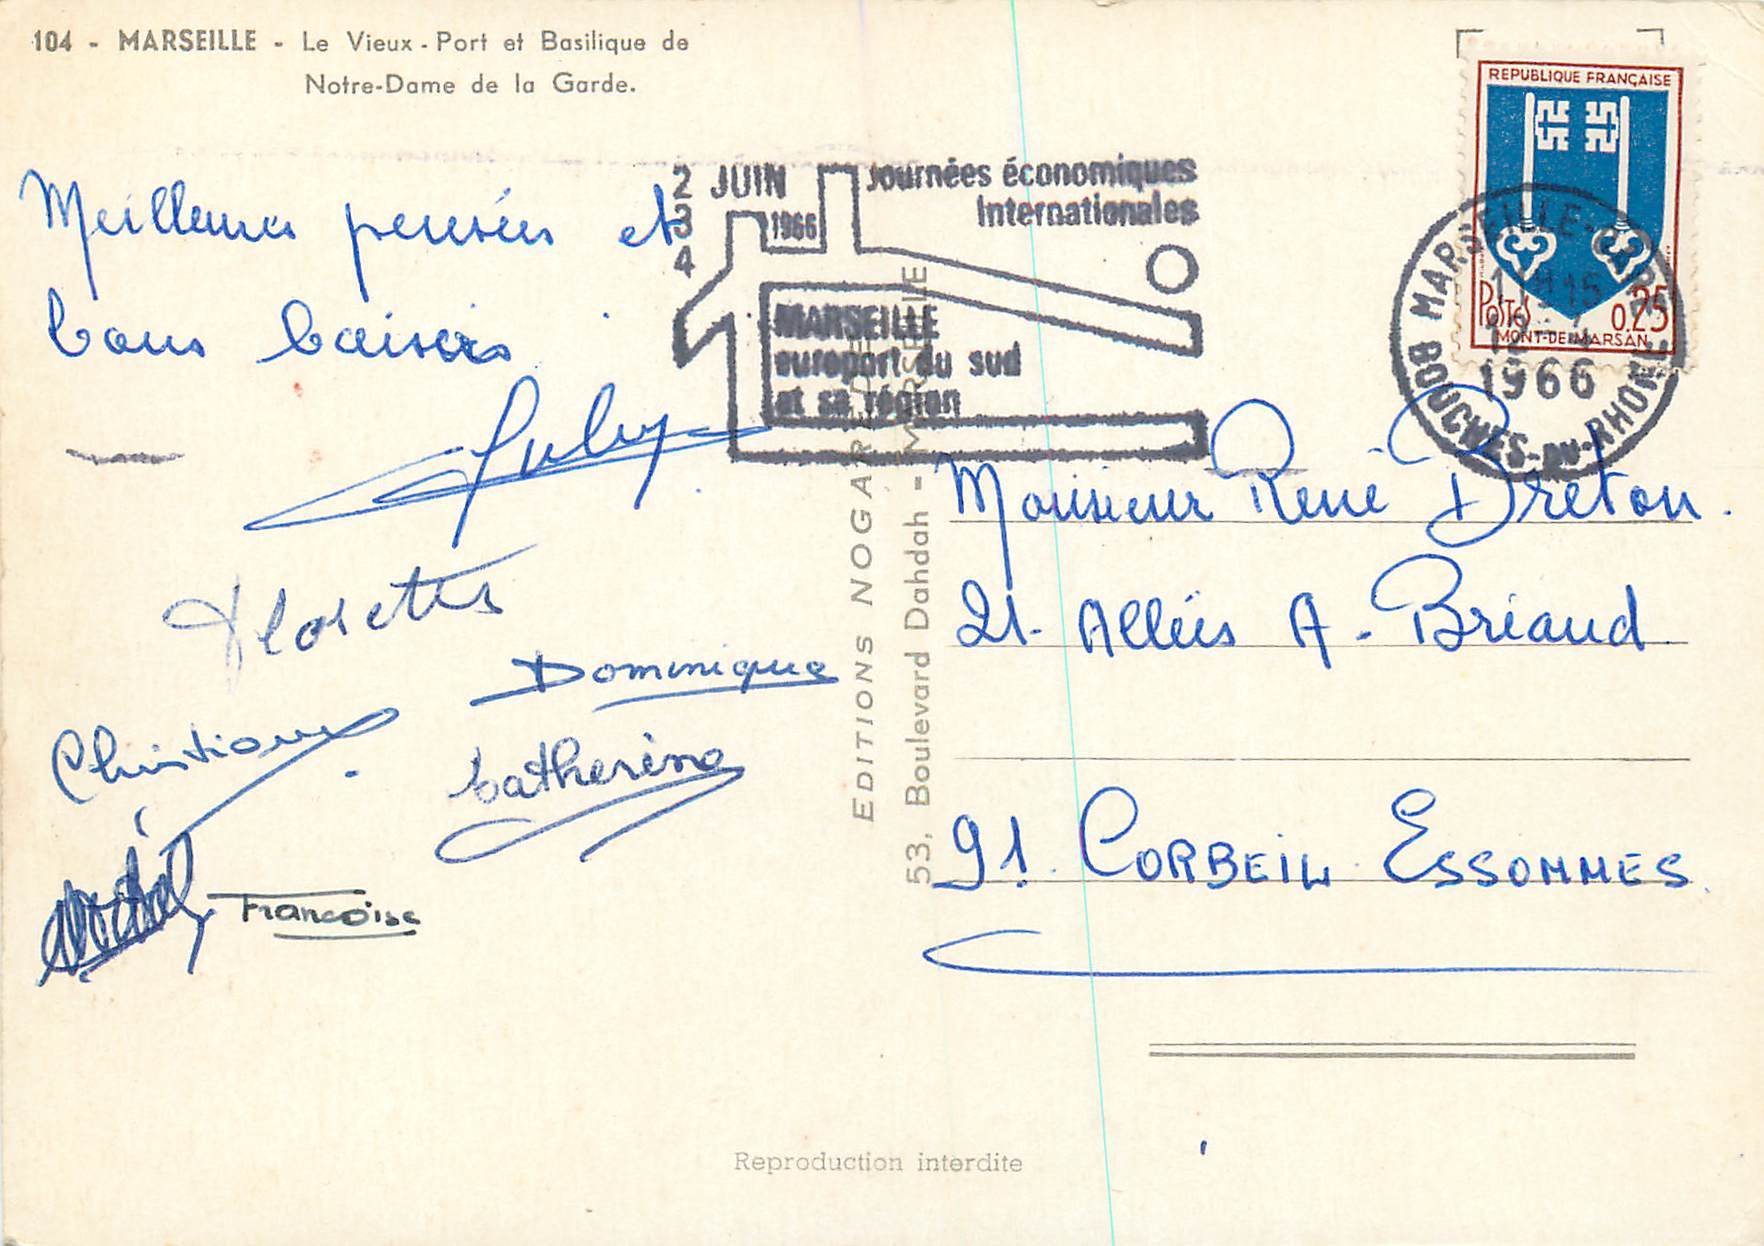 104 - MARSEILLE - Le Vieux-Port et Basilique de
Notre-Dame de la Garde.
Meilleures pensées et
bons baisers
Florette
Dominique
Christiane
Catherine
Françoise
2 JUIN
3
4
1966
Journées économiques
internationales
MARSEILLE
europort du sud
et sa région
REPUBLIQUE FRANÇAISE
POSTES 0.25
MONT-DE-MARSAN
MARSEILLE-GARE
1966
BOUCHES-DU-RHONE
EDITIONS NOGARÈDE
53, Boulevard Dahdah - MARSEILLE
Monsieur René Breton.
21. Allées A. Briand
91. CORBEIL ESSONNES
Reproduction interdite